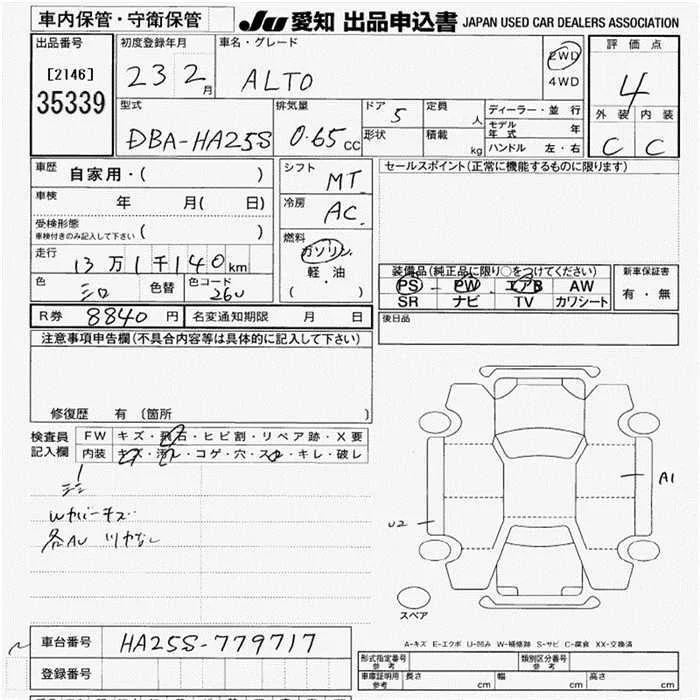 車内保管・守衛保管
JU 愛知 出品申込書 JAPAN USED CAR DEALERS ASSOCIATION
出品番号
[2146]
35339
初度登録年月
23 2 月
車名・グレード
ALTO
2WD
4WD
評価点
4
外装 内装
C C
型式
DBA-HA25S
排気量
0.65 CC
ドア 5
形状
定員 人
積載 kg
ディーラー・並行
モデル年式 年
ハンドル 左・右
車歴
自家用・( )
車検
年 月( 日)
受検形態
車検付きのみ記入して下さい ( )
走行
13万1千140km
色
シロ
色替
色コード
26U
シフト
MT
冷房
AC
燃料
ガソリン
軽・油
( )
セールスポイント(正常に機能するものに限ります)
装備品(純正品に限り○をつけてください)
PS PW エアB AW
SR ナビ TV カワシート
新車保証書
有・無
R券 8840円 名変通知期限 月 日
後日品
注意事項申告欄(不具合内容等は具体的に記入して下さい)
修復歴 有〔箇所 〕
検査員記入欄
FW キズ・飛石・ヒビ割・リペア跡・X要
内装 キズ・汚れ・コゲ・穴・スレ・キレ・破レ
A1
U2
スペア
A-キズ E-エクボ U-凹み W-補修跡 S-サビ C-腐食 XX-交換済
車台番号 HA25S-779717
登録番号
形式指定番号 参考
類別区分番号 参考
車庫証明用 参考 長さ cm 幅 cm 高さ cm